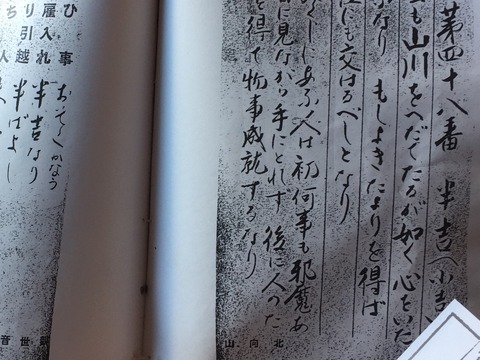 第四十八番 半吉(小吉
も山川をへだてたるが如く心をいた
なり もしよきたよりを得ば
にも交はるべしとなり
くしあふ人は初何事も邪魔あ
に見ながら手にとれず 後に人のた
を得て物事成就するなり
山向北
ひ事 おそくかなう
雇入れ 半吉なり
り引越 半ばよし
ち人
音世観